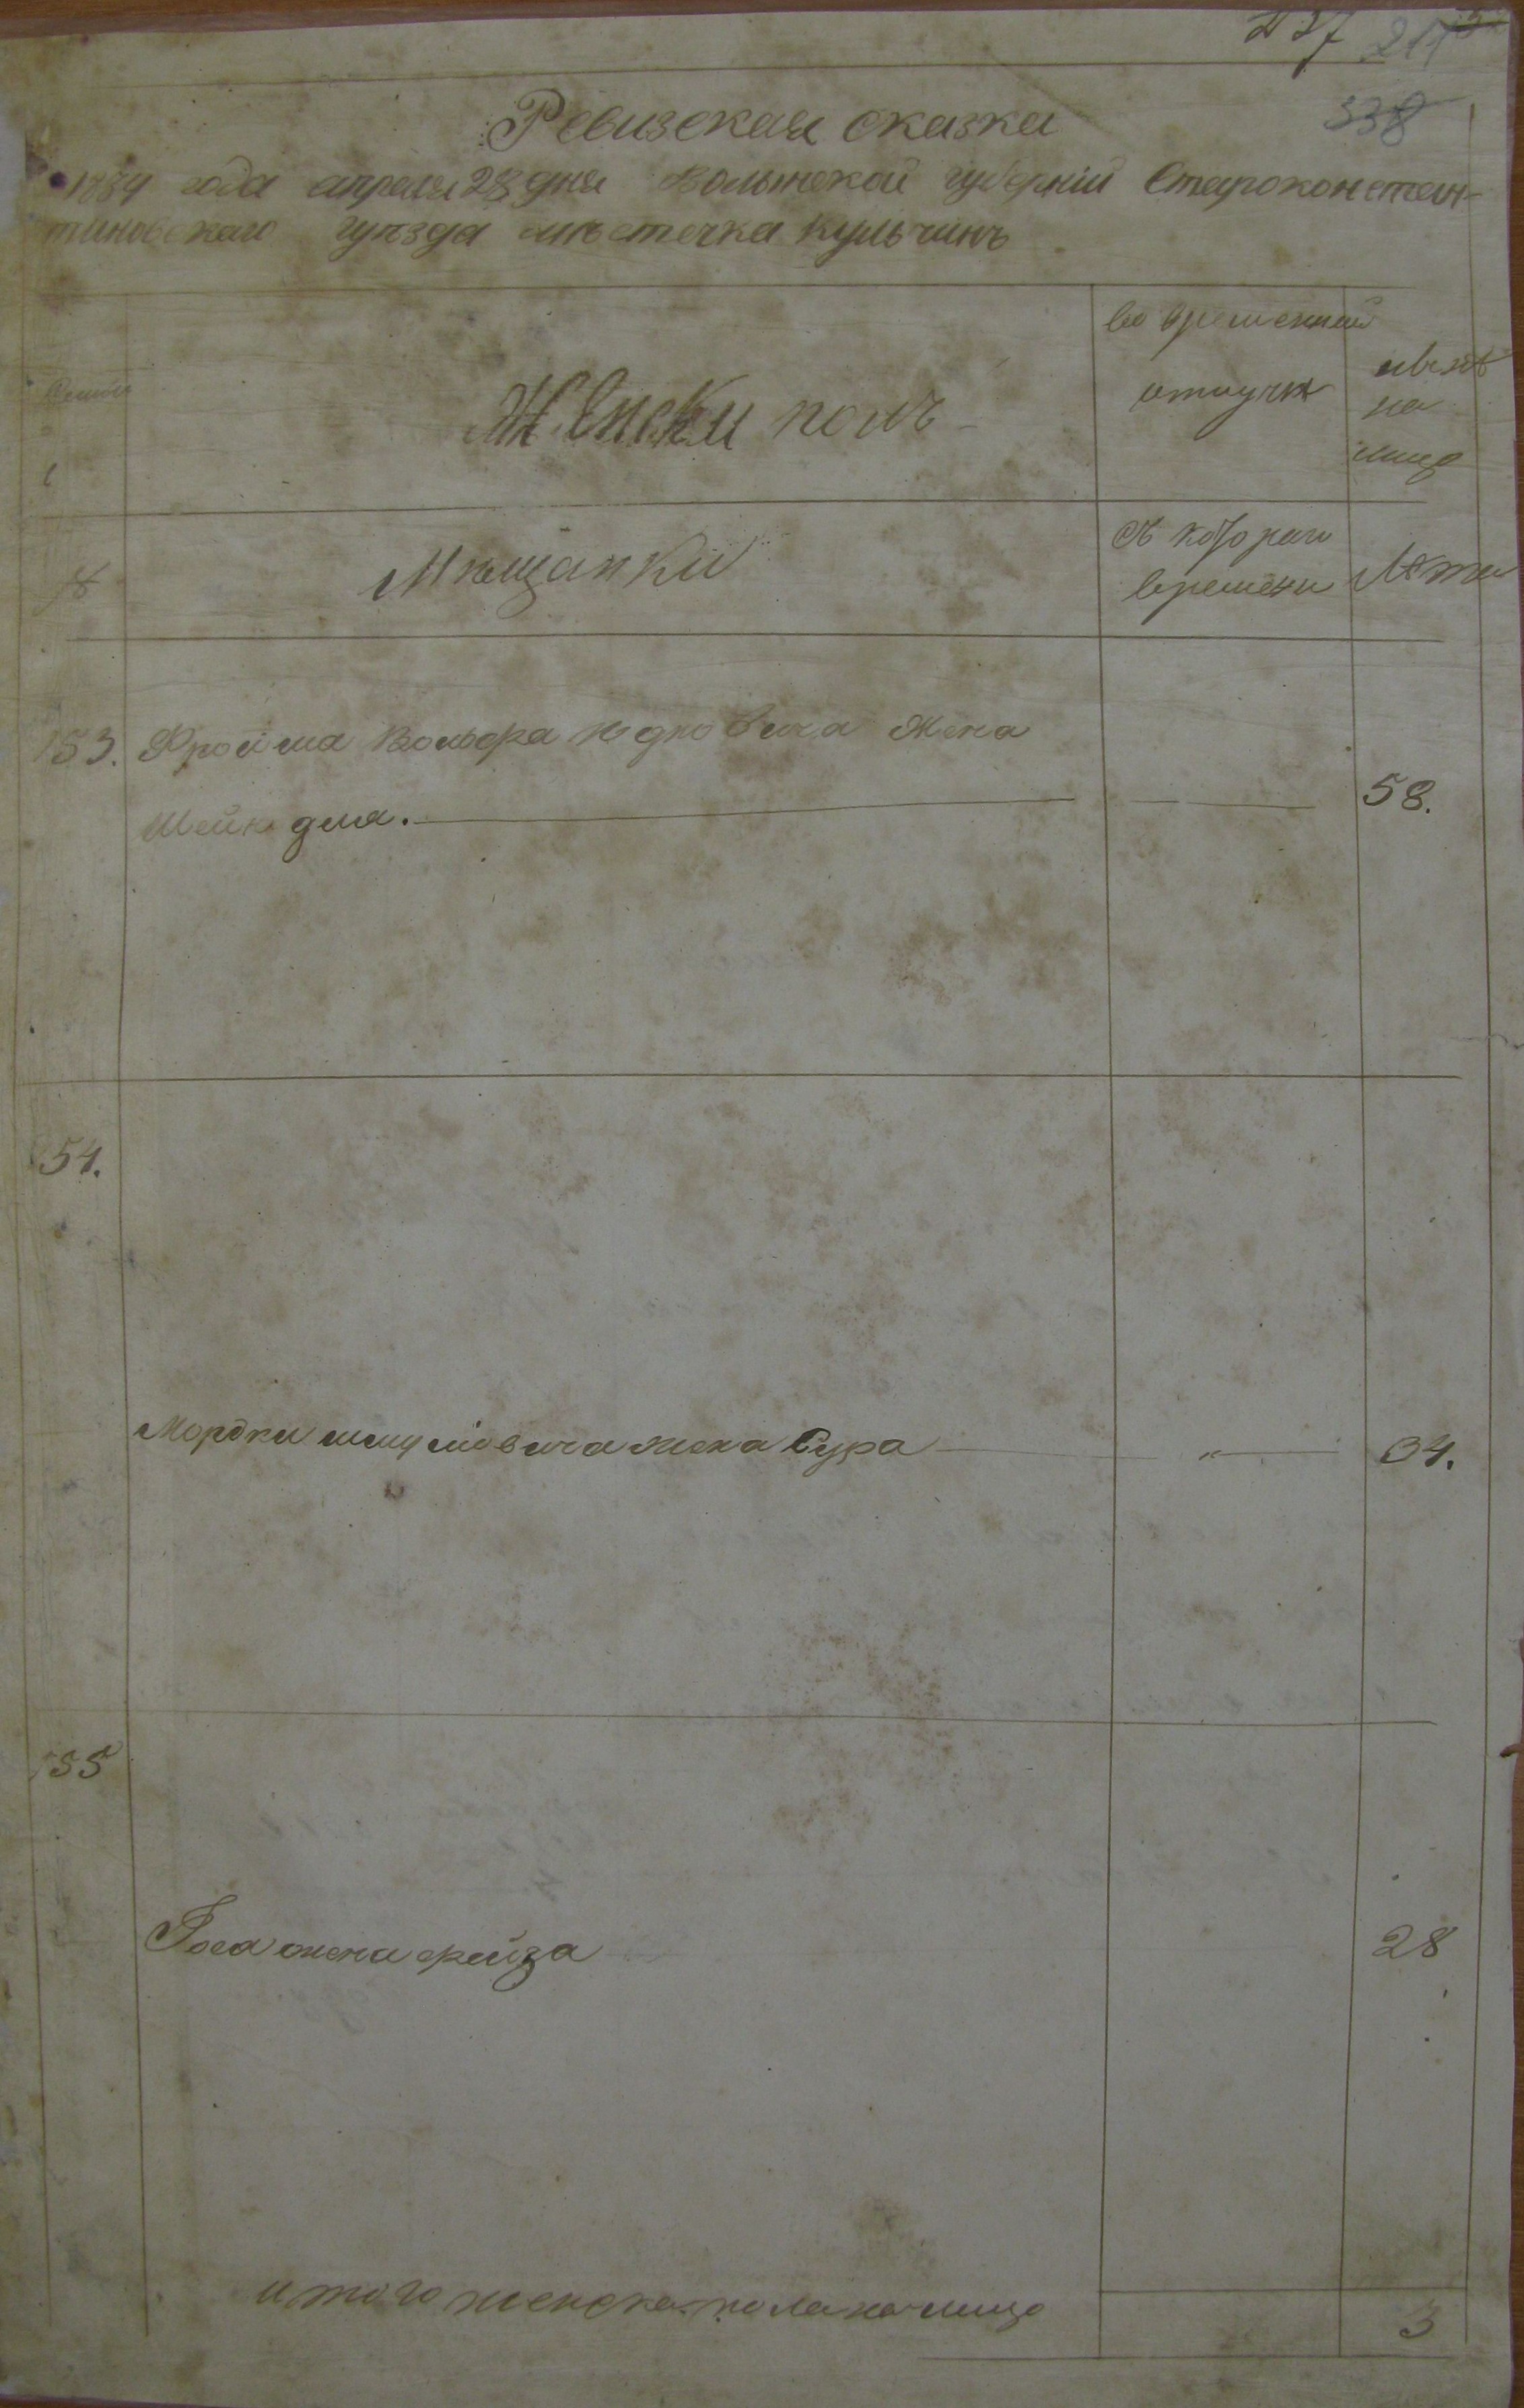 237
338
Ревизская сказка
1834 года апреля 28 дня Волынской губерніи Староконстан-
тиновскаго уѣзда мѣстечка Кульчинъ
Женски полъ
во временной
отлучкѣ
нынѣ
на
лицо
Мѣщанки
Съ котораго
времени
Лѣта
153. Фроима Вольфа Юдковича Жена
Шейндля. 58.
154.
Мордки шмуліовича жена Сура " 34.
155
Его жена фейга 28
итого женска пола налицо 3